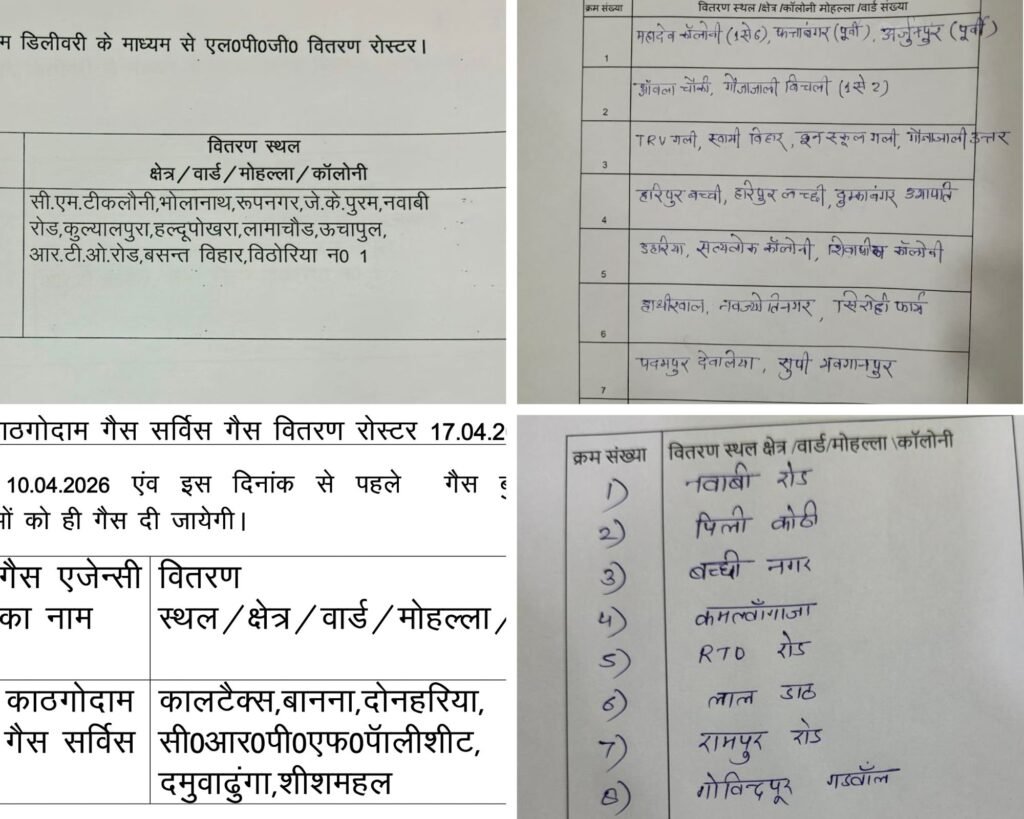 म डिलीवरी के माध्यम से एल0पी0जी0 वितरण रोस्टर।
वितरण स्थल
क्षेत्र/वार्ड/मोहल्ला/कॉलोनी
सी.एम.टीकलौनी,भोलानाथ,रूपनगर,जे.के.पुरम,नवाबी
रोड,कुल्यालपुरा,हल्दूपोखरा,लामाचौड,ऊचापुल,
आर.टी.ओ.रोड,बसन्त विहार,विठोरिया न0 1
क्रम संख्या वितरण स्थल /क्षेत्र /कॉलोनी मोहल्ला /वार्ड संख्या
1 महादेव कॉलोनी (1से6), (पूर्वी), अर्जुनपुर (पूर्वी)
2 आँवला चौकी, गौजाजाली बिचली (1से 2)
3 TRV गली, स्वामी विहार, दून स्कूल गली, गौजाजाली उत्तर
4 हरिपुर बच्ची, हरिपुर लच्छी,
5 डहरिया, सत्यलोक कॉलोनी, कॉलोनी
6 हाथीखाल, नवज्योतिनगर, सिरोही फार्म
7 पदमपुर देवलिया, सुपी
काठगोदाम गैस सर्विस गैस वितरण रोस्टर 17.04.2
10.04.2026 एंव इस दिनांक से पहले गैस बु
ों को ही गैस दी जायेगी।
गैस एजेन्सी वितरण
का नाम स्थल/क्षेत्र/वार्ड/मोहल्ला/
काठगोदाम कालटैक्स,बानना,दोनहरिया,
गैस सर्विस सी0आर0पी0एफ0पॅालीशीट,
दमुवाढुंगा,शीशमहल
क्रम संख्या वितरण स्थल क्षेत्र /वार्ड/मोहल्ला \कॉलोनी
1) नवाबी रोड
2) पिली कोठी
3) बच्ची नगर
4) कमलवाँगाजा
5) RTO रोड
6) लाल डाठ
7) रामपुर रोड
8) गोविन्दपूर गडवाँल